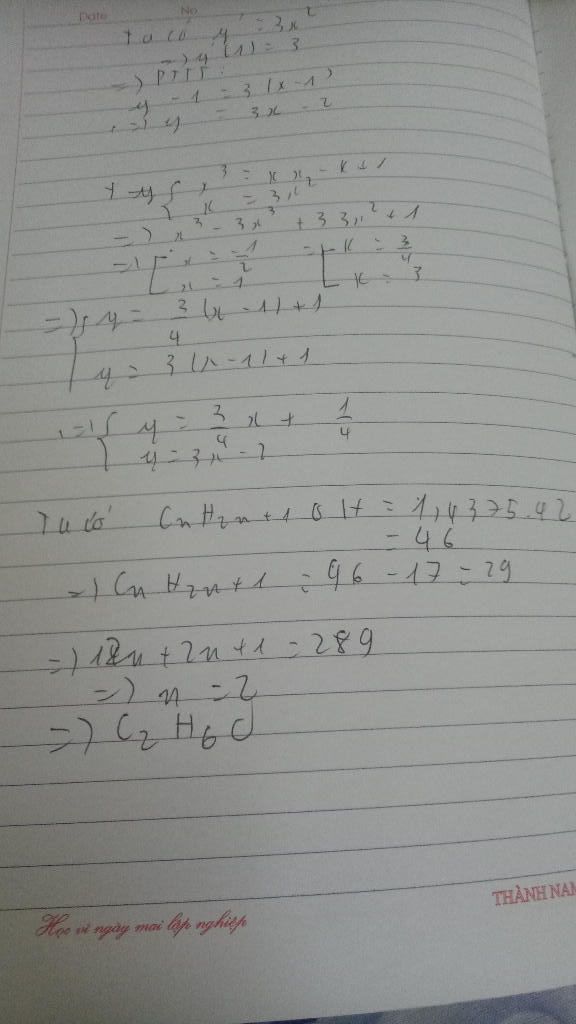 Date No
Ta có y' = 3x²
=> y'(1) = 3
=> PTTT:
y - 1 = 3(x - 1)
<=> y = 3x - 2
{ x³ = kx - k + 1
k = 3x²
=> x³ - 3x³ + 3x² + 1
=> [ x = -1/2 => [ k = 3/4
x = 1 k = 3
=> { y = 3/4 (x - 1) + 1
y = 3(x - 1) + 1
<=> { y = 3/4 x + 1/4
y = 3x - 2
Ta có CnH2n+1OH = 1,4375.42
= 46
=> CnH2n+1 = 46 - 17 = 29
=> 12n + 2n + 1 = 289
=> n = 2
=> C2H6O
THÀNH NAM
Học vì ngày mai lập nghiệp